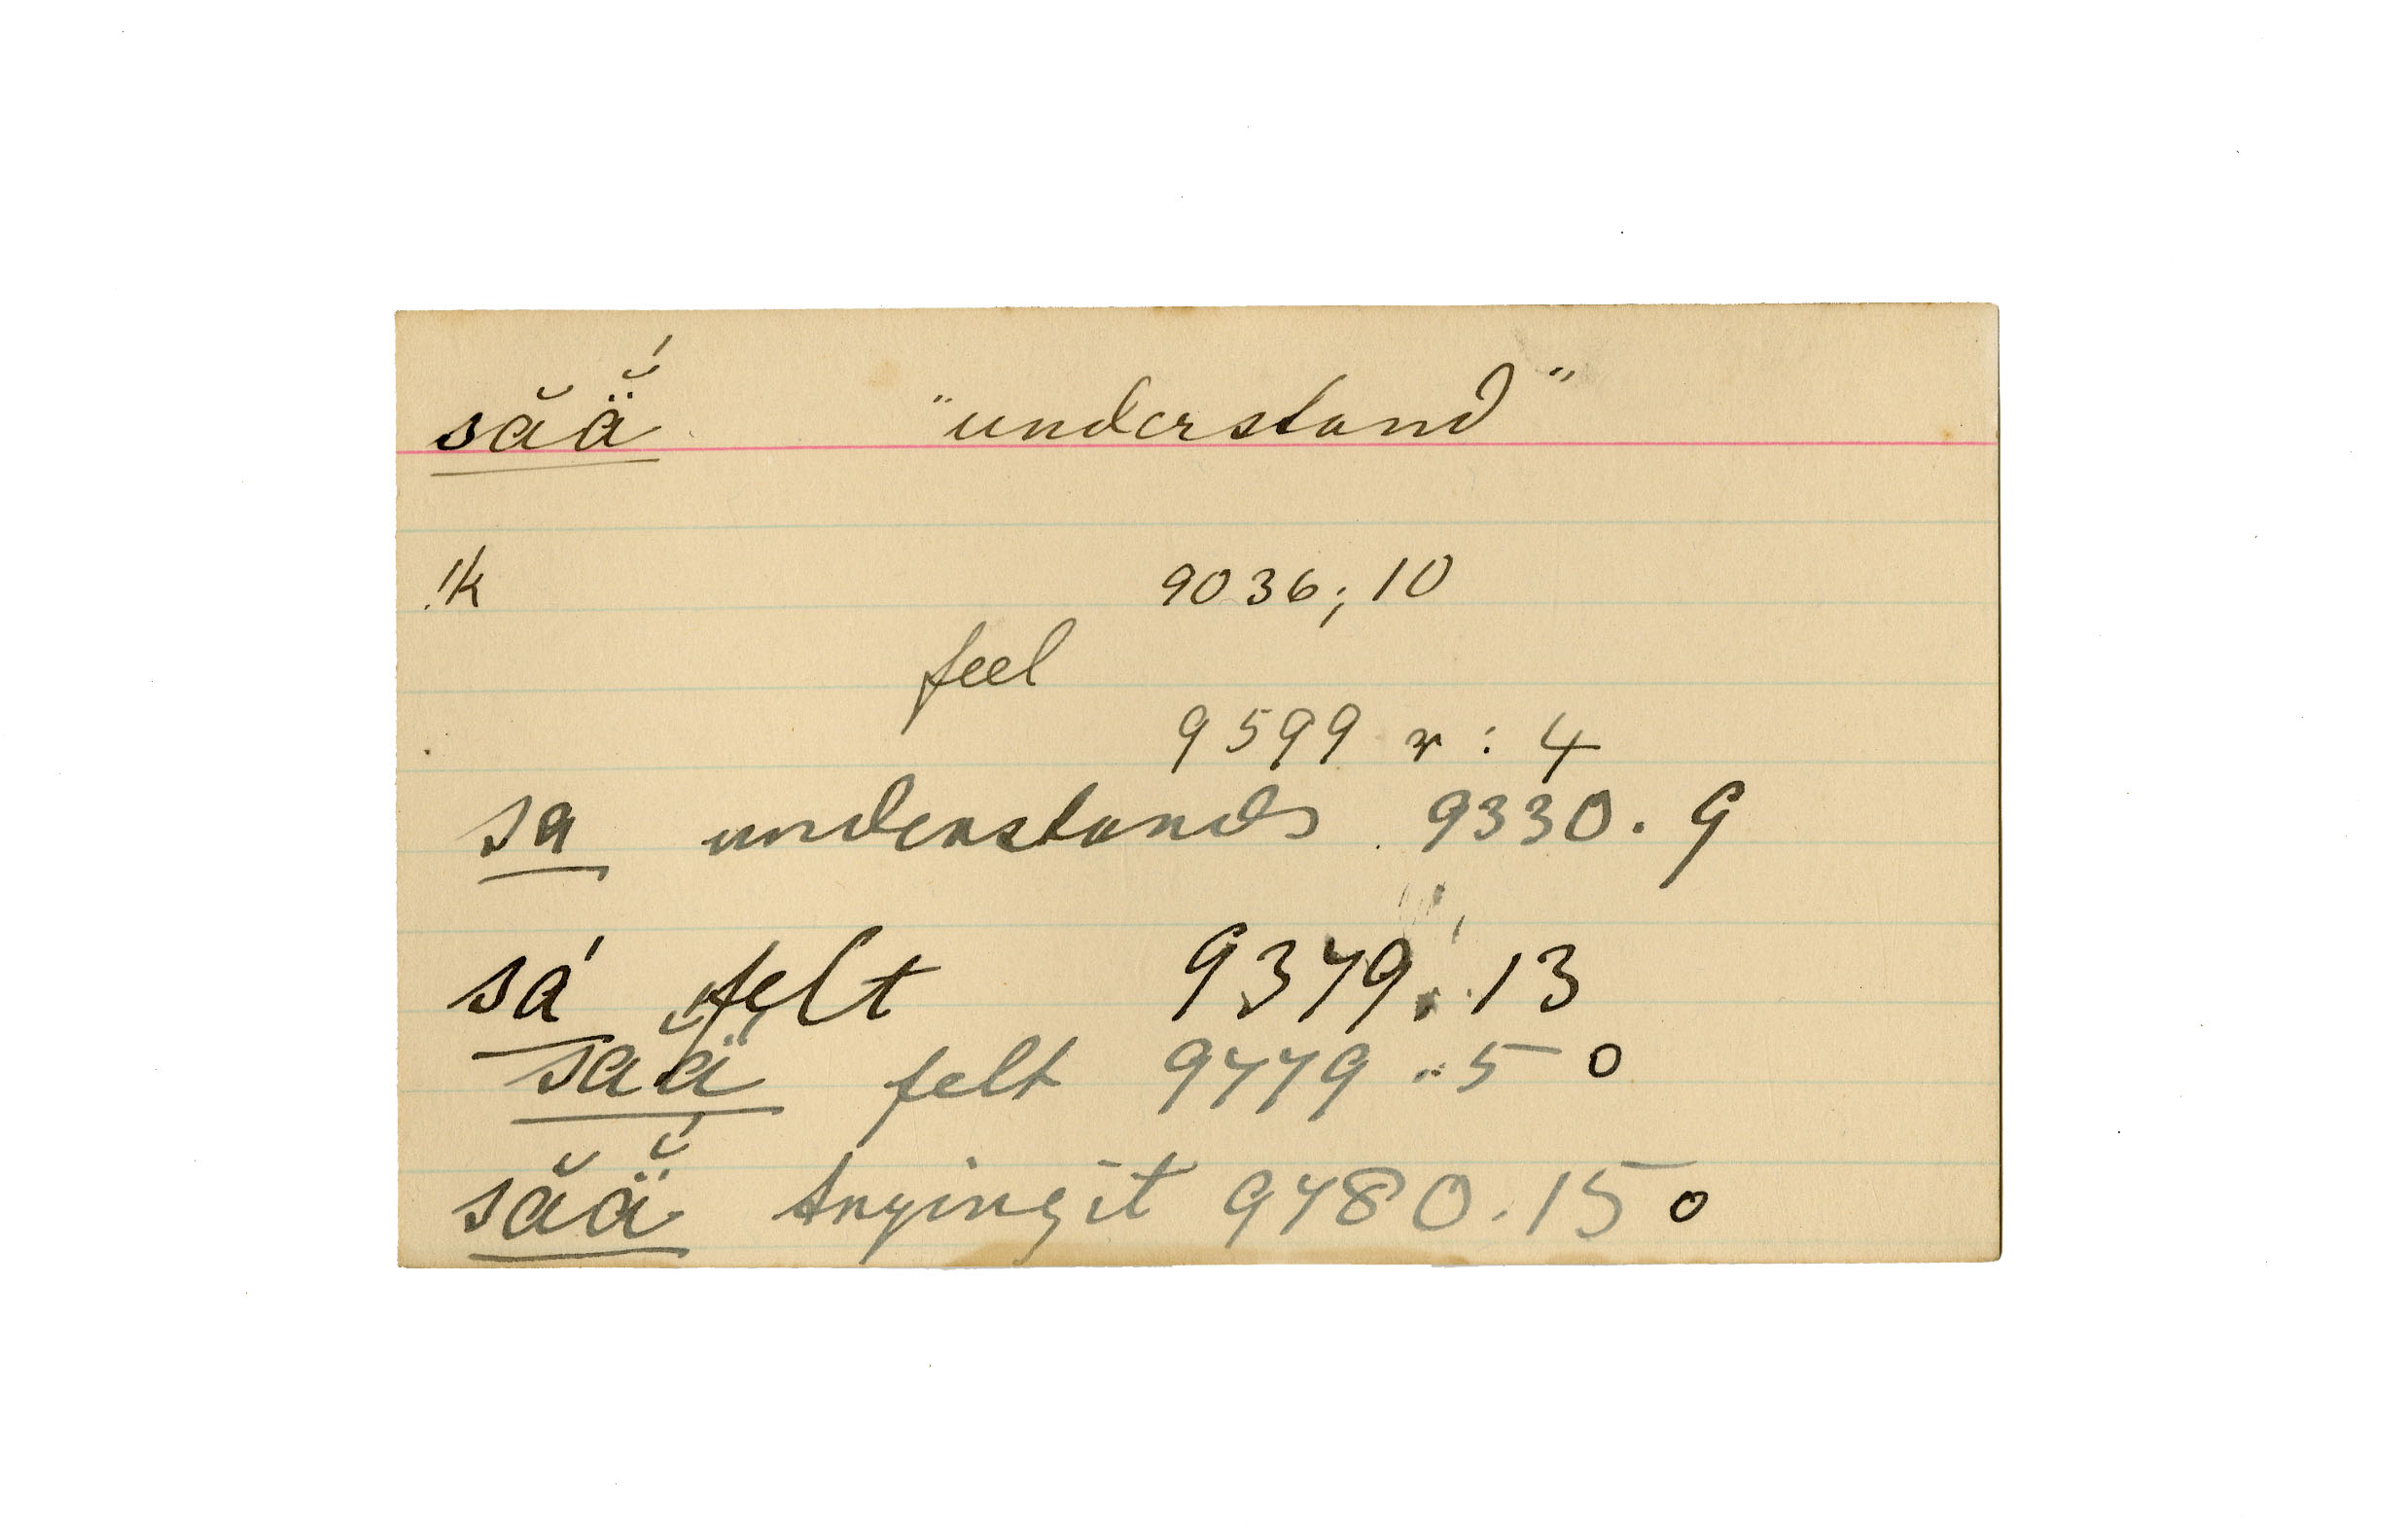 săä̆́ "understand"
!k 9036; 10
feel
9599 r : 4
sa understands 9330. 9
sá felt 9379. 13
săä̆ felt 9479. 5 o
săä̆́ trying it 9480. 15 o